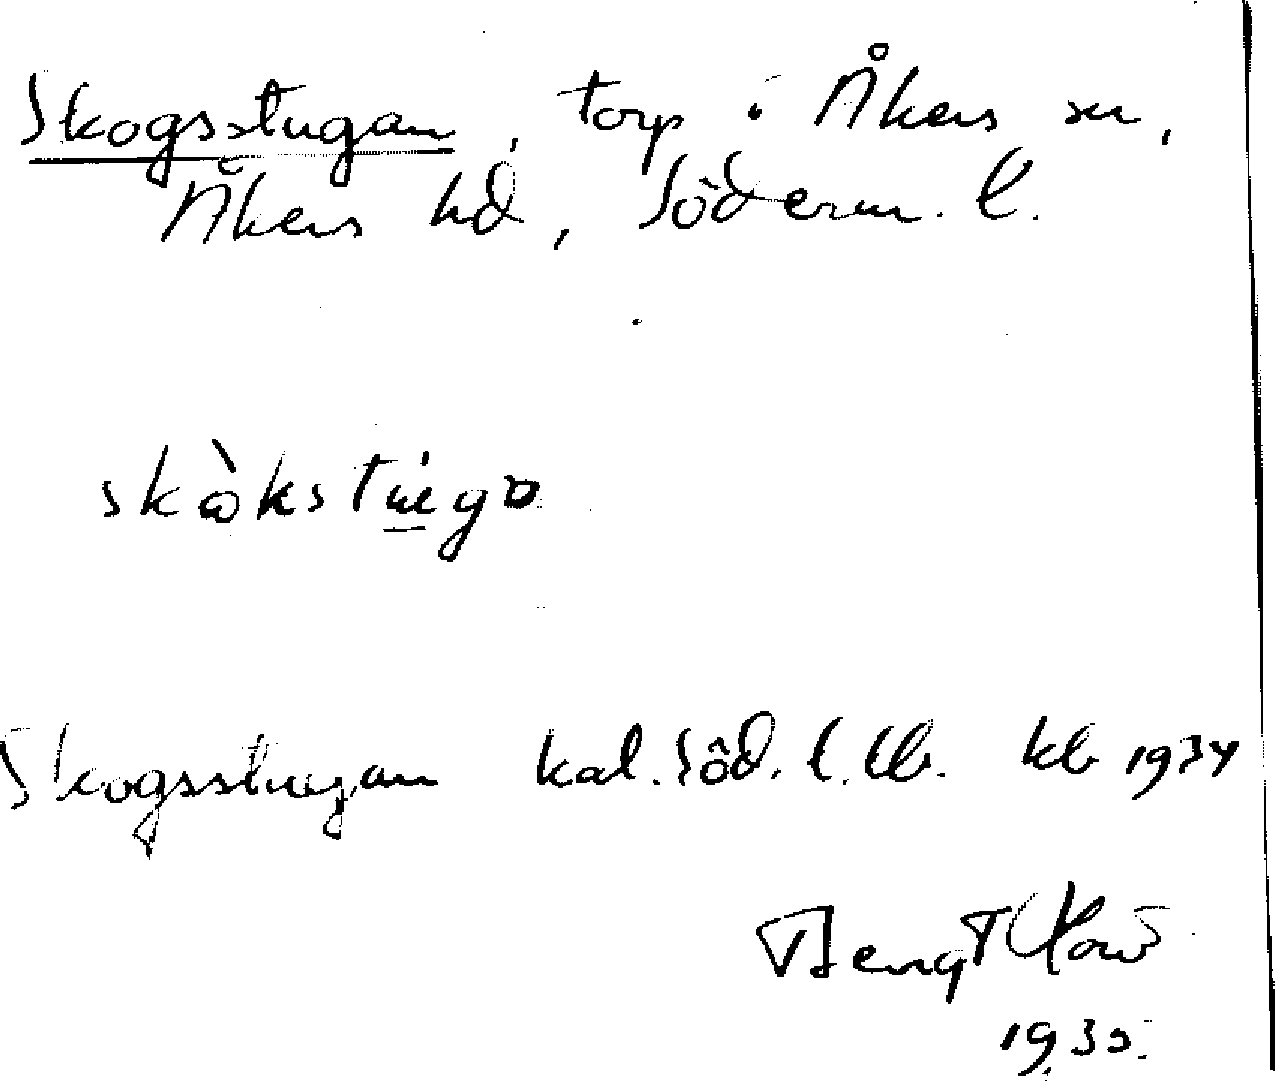 Skogsstugan, torp i Åkers sn,
Åkers hd, Söderm. l.
skòkstúgo
Skogsstugan kal. Söd. l. kb 1934
Bengt
1935.